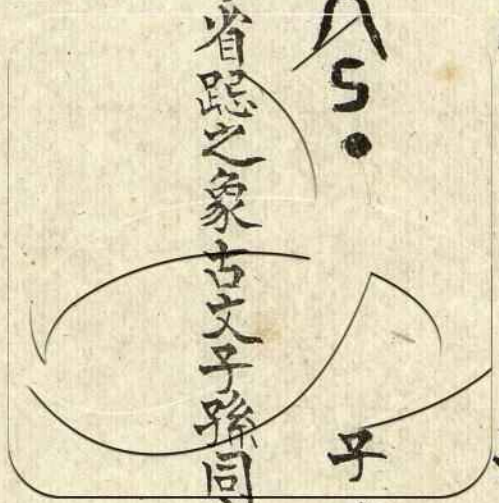 子
省跽之象古文子孫同